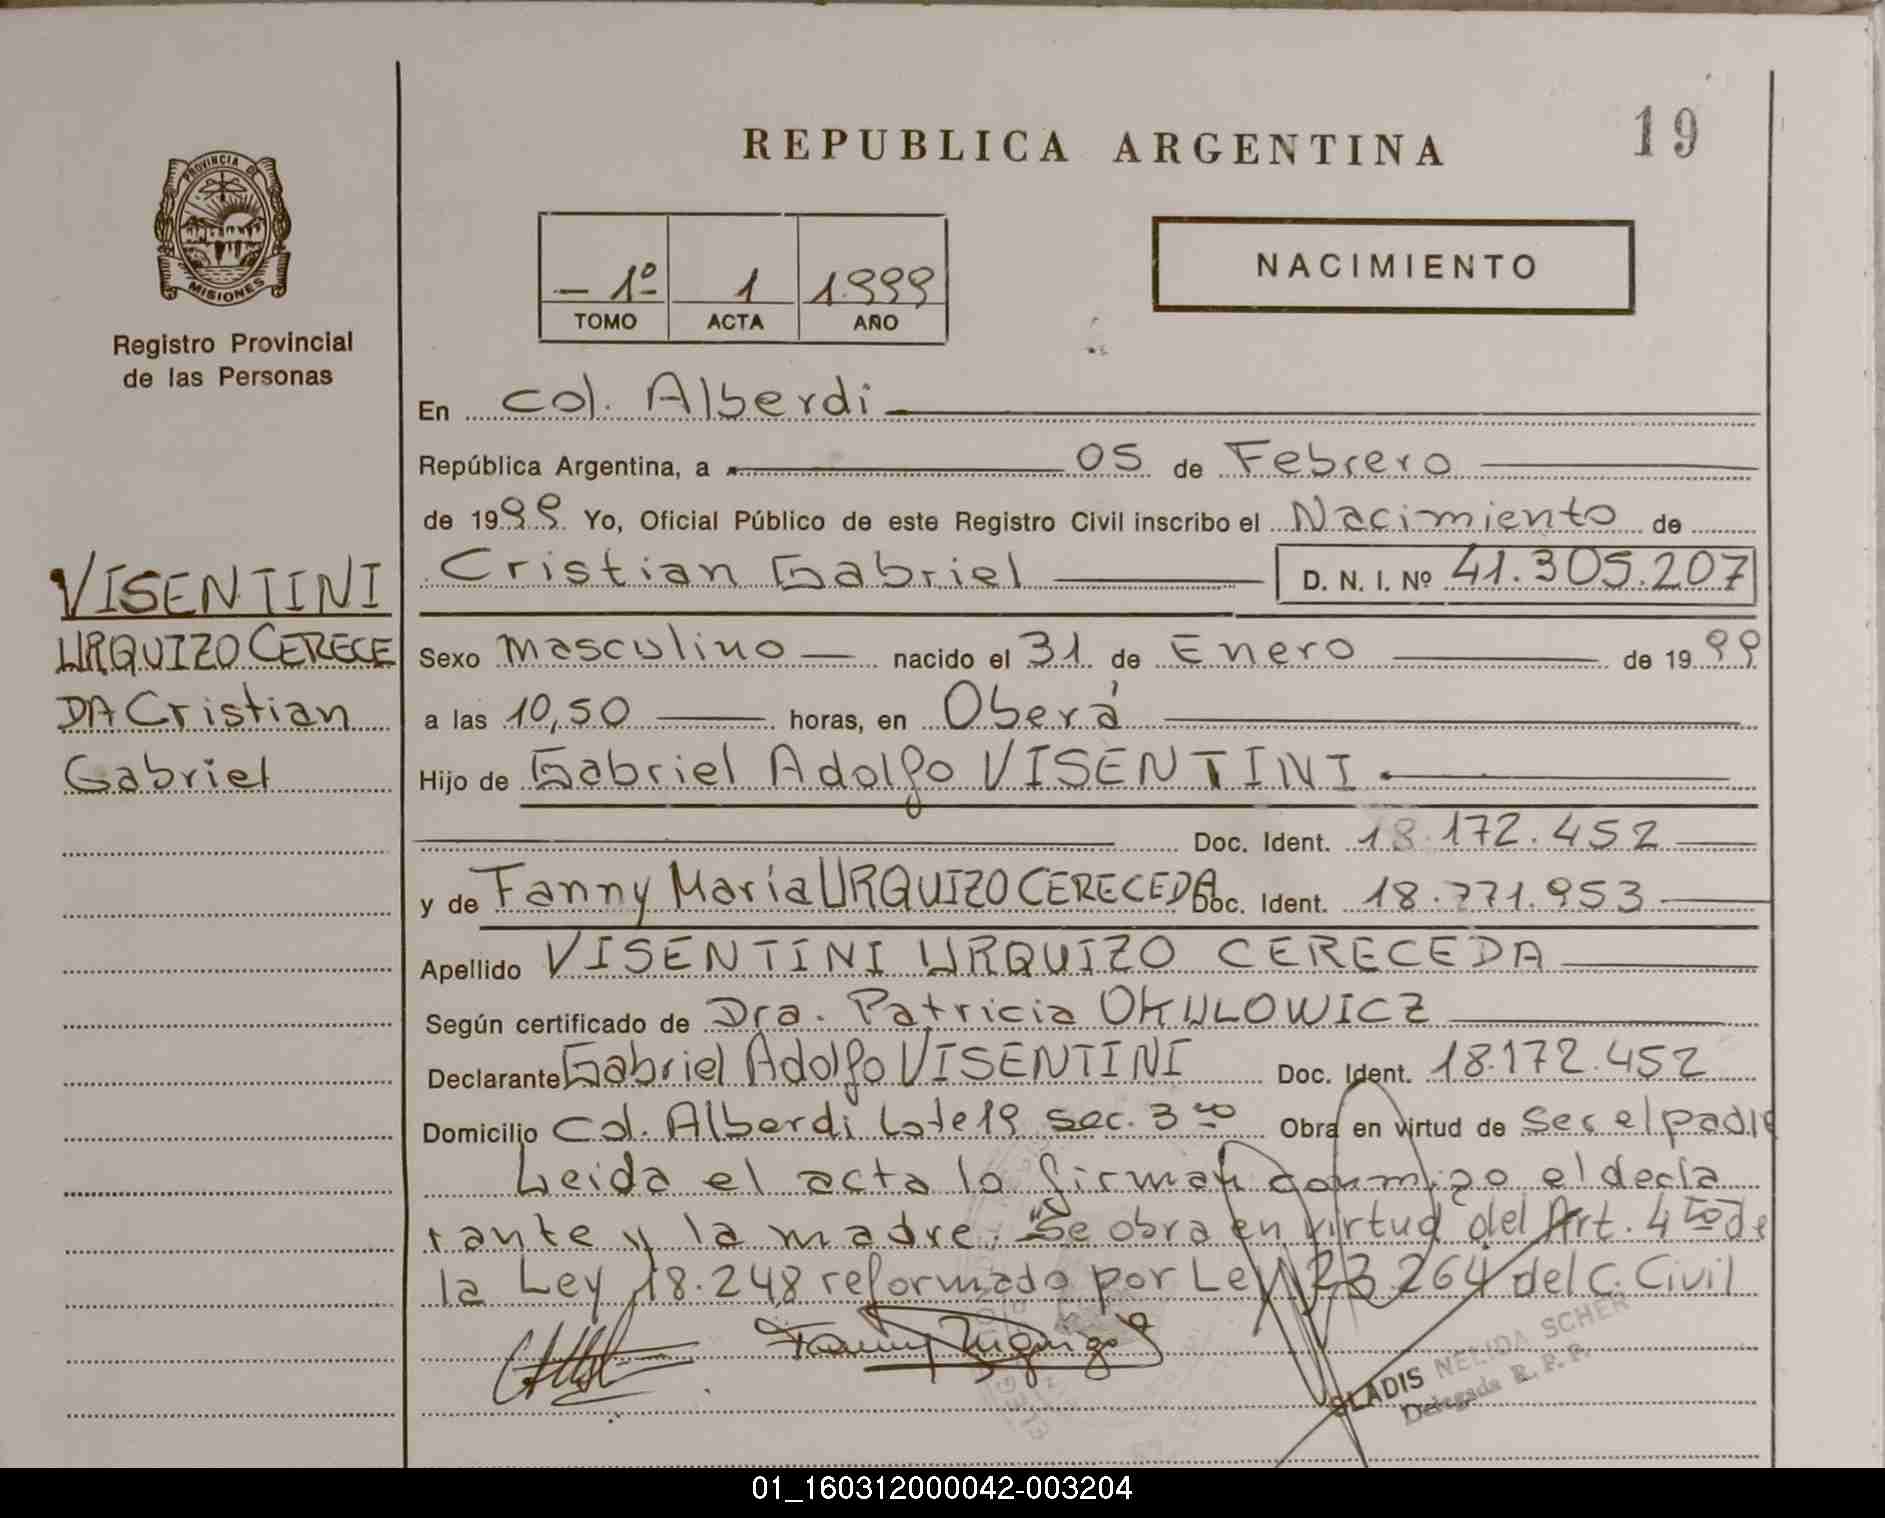 REPUBLICA ARGENTINA
19
PROVINCIA DE
MISIONES
Registro Provincial
de las Personas
- 1º 1 1.999
TOMO ACTA AÑO
NACIMIENTO
En Col. Alberdi
República Argentina, a 05 de Febrero
de 1999 Yo, Oficial Público de este Registro Civil inscribo el Nacimiento de
Cristian Gabriel D. N. I. Nº 41.305.207
VISENTINI
URQUIZO CERECE
DA Cristian
Gabriel
Sexo masculino nacido el 31 de Enero de 1999
a las 10,50 horas, en Oberá
Hijo de Gabriel Adolfo VISENTINI
Doc. Ident. 18.172.452
y de Fanny María URQUIZO CERECEDA Doc. Ident. 18.771.953
Apellido VISENTINI URQUIZO CERECEDA
Según certificado de Dra. Patricia OKULOWICZ
Declarante Gabriel Adolfo VISENTINI Doc. Ident. 18.172.452
Domicilio Col. Alberdi Lote 19 sec. 3ra Obra en virtud de ser el padre
Leida el acta la firman conmigo el decla
rante y la madre. "Se obra en virtud del Art. 4to de
la Ley 18.248 reformado por Ley 23.264 del C. Civil
GLADIS NELIDA SCHER
Delegada R. P. P.
01_160312000042-003204